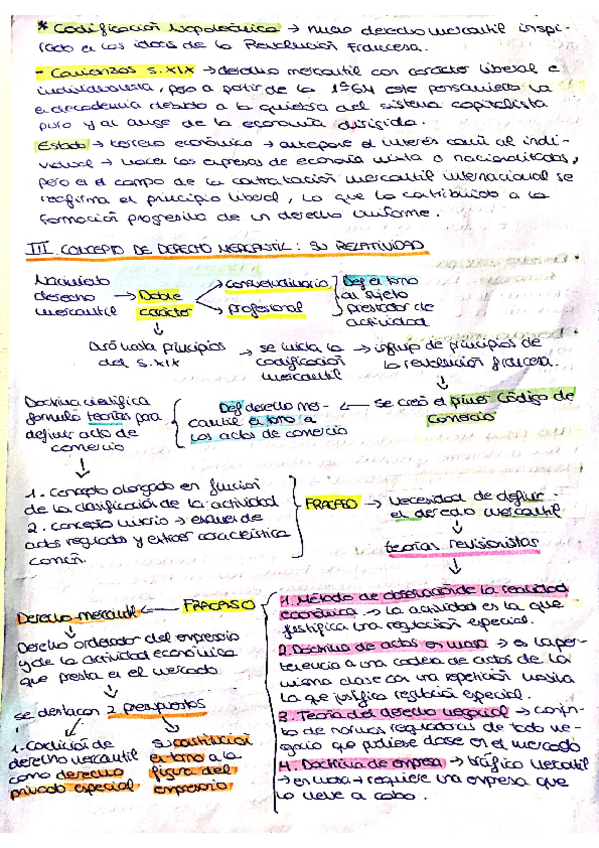 * Codificación Napoleónica → nuevo derecho mercantil inspi-
rado en las ideas de la Revolución Francesa.
- Comienzos S.XIX → derecho mercantil con carácter liberal e
individualista, pero a partir de la 1ªGM este pensamiento va
en decadencia debido a la quiebra del sistema capitalista
puro y al auge de la economía dirigida.
Estado → tercero económico → antepone el interés común al indi-
vidual → nacen las empresas de economía mixta o nacionalizadas,
pero en el campo de la contratación mercantil internacional se
reafirma el principio liberal, lo que ha contribuido a la
formación progresiva de un derecho uniforme.
III. CONCEPTO DE DERECHO MERCANTIL: SU RELATIVIDAD
Nacimiento
derecho
mercantil → Doble
carácter
consuetudinario
profesional
Def en torno
al sujeto
prestador de
actividad
principios
del S.XIX → se inicia la
codificación
mercantil → influjo de principios de
la revolución francesa.
Se creó el primer Código de
Comercio
Def derecho mer-
cantil en torno a
los actos de comercio
Doctrina científica
formuló teorías para
definir acto de
comercio
1. Concepto otorgado en función
de la clasificación de la actividad
2. Concepto único → examen de
actos regulados y extraer característica
común.
FRACASO → Necesidad de definir
el derecho mercantil
teorías revisionistas
1. Método de observación de la realidad
económica → la actividad es la que
justifica una regulación especial.
2. Doctrina de actos en masa → es la per-
tenencia a una cadena de actos de la
misma clase con una repetición masiva
la que justifica regulación especial.
3. Teoría del derecho negocial → conjun-
to de normas reguladoras de todo ne-
gocio que pudiese darse en el mercado
4. Doctrina de empresa → tráfico mercantil
→ en masa → requiere una empresa que
lo lleve a cabo.
FRACASO
Derecho mercantil
Derecho ordenador del empresario
y de la actividad económica
que presta en el mercado
se destacan 2 presupuestos
1. Condición de
derecho mercantil
como derecho
privado especial
Su constitución
en torno a la
figura del
empresario